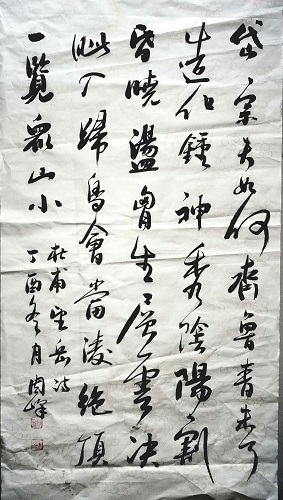 岱宗夫如何齊魯青未了
造化鍾神秀陰陽割
昏曉盪胷生層雲決
眦入歸鳥會當凌絕頂
一覽眾山小
杜甫望岳诗
丁酉冬月